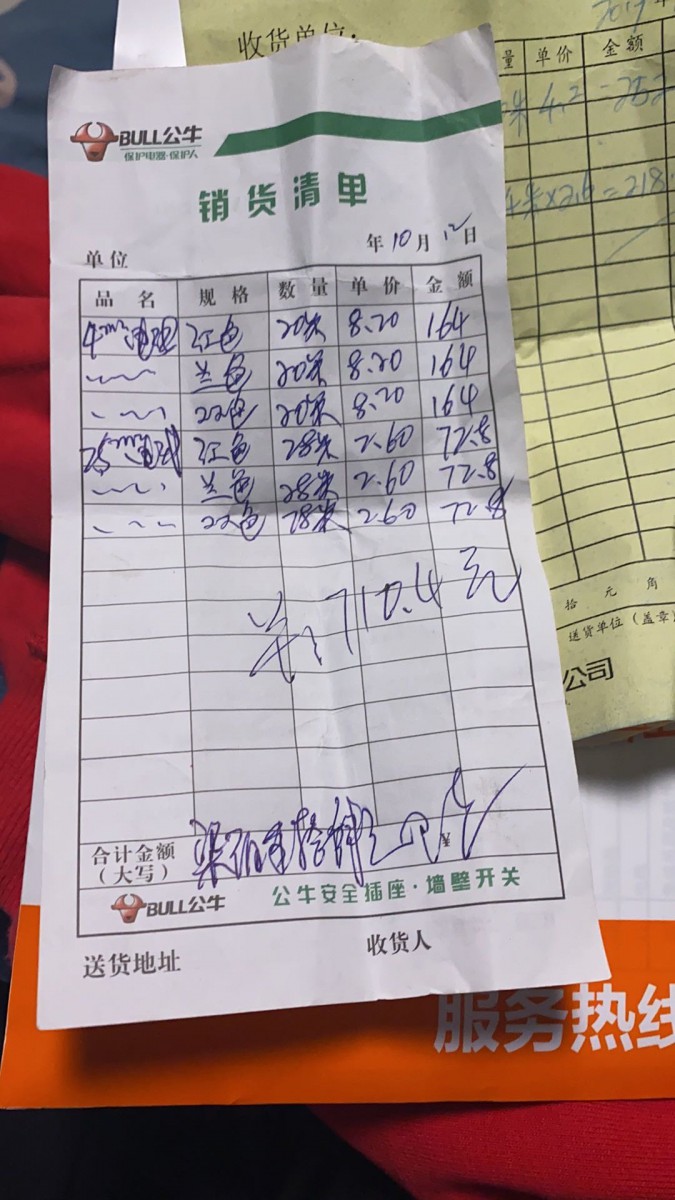 收货单位：
2019年
量 单价 金额
米 4.2 =252
米×2.6=218.
BULL公牛
保护电器·保护人
销货清单
单位 年10月12日
品名 规格 数量 单价 金额
4mm²电线 红色 20米 8.20 164
兰色 20米 8.20 164
双色 20米 8.20 164
2.5mm²电线 红色 28米 2.60 72.8
兰色 28米 2.60 72.8
双色 28米 2.60 72.8
共：710.4元
合计金额
（大写） ¥
BULL公牛 公牛安全插座·墙壁开关
送货地址 收货人
拾 元 角
送货单位（盖章）
公司
服务热线